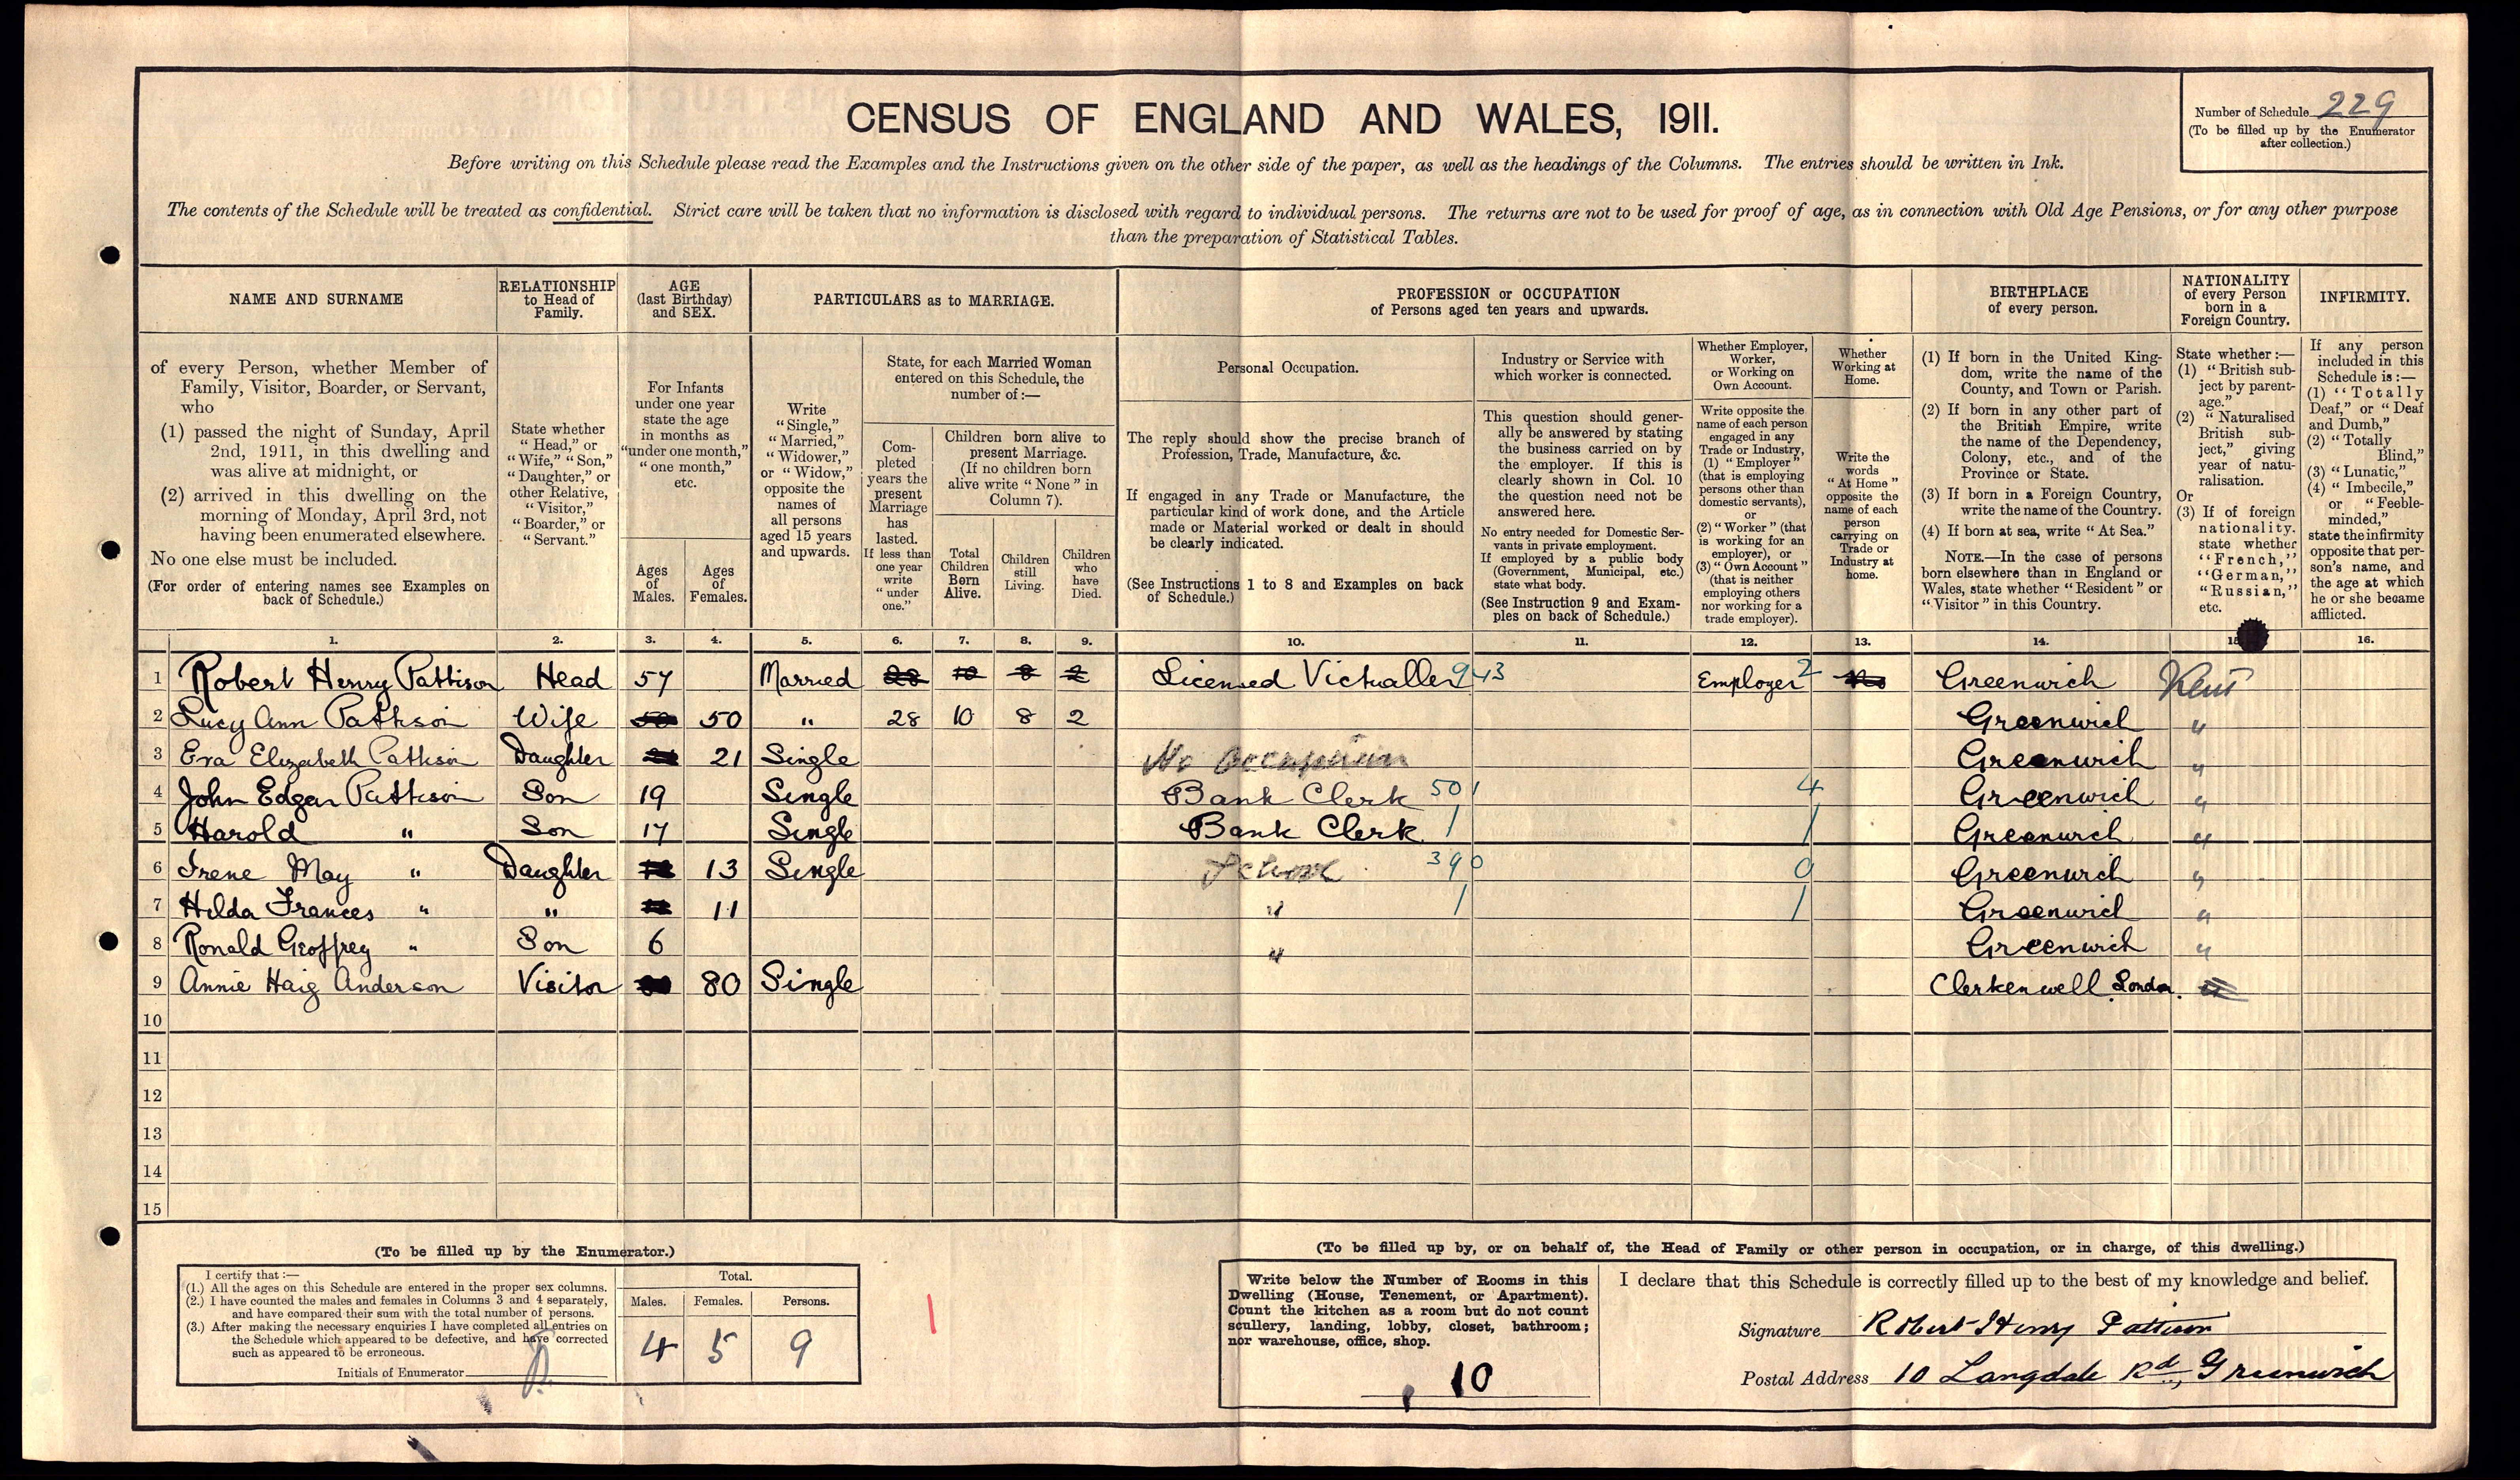 CENSUS OF ENGLAND AND WALES, 1911.
Number of Schedule 229
(To be filled up by the Enumerator
after collection.)
Before writing on this Schedule please read the Examples and the Instructions given on the other side of the paper, as well as the headings of the Columns. The entries should be written in Ink.
The contents of the Schedule will be treated as confidential. Strict care will be taken that no information is disclosed with regard to individual persons. The returns are not to be used for proof of age, as in connection with Old Age Pensions, or for any other purpose
than the preparation of Statistical Tables.
NAME AND SURNAME
of every Person, whether Member of
Family, Visitor, Boarder, or Servant,
who
(1) passed the night of Sunday, April
2nd, 1911, in this dwelling and
was alive at midnight, or
(2) arrived in this dwelling on the
morning of Monday, April 3rd, not
having been enumerated elsewhere.
No one else must be included.
(For order of entering names see Examples on
back of Schedule.)
RELATIONSHIP
to Head of
Family.
State whether
"Head," or
"Wife," "Son,"
"Daughter," or
other Relative,
"Visitor,"
"Boarder," or
"Servant."
AGE
(last Birthday)
and SEX.
For Infants
under one year
state the age
in months as
"under one month,"
"one month,"
etc.
Ages
of
Males.
Ages
of
Females.
PARTICULARS as to MARRIAGE.
Write
"Single,"
"Married,"
"Widower,"
or "Widow,"
opposite the
names of
all persons
aged 15 years
and upwards.
State, for each Married Woman
entered on this Schedule, the
number of:—
Com-
pleted
years the
present
Marriage
has
lasted.
If less than
one year
write
"under
one."
Children born alive to
present Marriage.
(If no children born
alive write "None" in
Column 7).
Total
Children
Born
Alive.
Children
still
Living.
Children
who
have
Died.
PROFESSION or OCCUPATION
of Persons aged ten years and upwards.
Personal Occupation.
The reply should show the precise branch of
Profession, Trade, Manufacture, &c.
If engaged in any Trade or Manufacture, the
particular kind of work done, and the Article
made or Material worked or dealt in should
be clearly indicated.
(See Instructions 1 to 8 and Examples on back
of Schedule.)
Industry or Service with
which worker is connected.
This question should gener-
ally be answered by stating
the business carried on by
the employer. If this is
clearly shown in Col. 10
the question need not be
answered here.
No entry needed for Domestic Ser-
vants in private employment.
If employed by a public body
(Government, Municipal, etc.)
state what body.
(See Instruction 9 and Exam-
ples on back of Schedule.)
Whether Employer,
Worker,
or Working on
Own Account.
Write opposite the
name of each person
engaged in any
Trade or Industry,
(1) "Employer"
(that is employing
persons other than
domestic servants),
or
(2) "Worker" (that
is working for an
employer), or
(3) "Own Account"
(that is neither
employing others
nor working for a
trade employer).
Whether
Working at
Home.
Write the
words
"At Home"
opposite the
name of each
person
carrying on
Trade or
Industry at
home.
BIRTHPLACE
of every person.
(1) If born in the United King-
dom, write the name of the
County, and Town or Parish.
(2) If born in any other part of
the British Empire, write
the name of the Dependency,
Colony, etc., and of the
Province or State.
(3) If born in a Foreign Country,
write the name of the Country.
(4) If born at sea, write "At Sea."
NOTE.—In the case of persons
born elsewhere than in England or
Wales, state whether "Resident" or
"Visitor" in this Country.
NATIONALITY
of every Person
born in a
Foreign Country.
State whether:—
(1) "British sub-
ject by parent-
age."
(2) "Naturalised
British sub-
ject," giving
year of natu-
ralisation.
Or
(3) If of foreign
nationality,
state whether
"French,"
"German,"
"Russian,"
etc.
INFIRMITY.
If any person
included in this
Schedule is:—
(1) "Totally
Deaf," or "Deaf
and Dumb,"
(2) "Totally
Blind,"
(3) "Lunatic,"
(4) "Imbecile,"
or "Feeble-
minded,"
state the infirmity
opposite that per-
son's name, and
the age at which
he or she became
afflicted.
1. 2. 3. 4. 5. 6. 7. 8. 9. 10. 11. 12. 13. 14. 16.
1 Robert Henry Pattison Head 57 Married 28 10 8 2 Licensed Victualler 943 Employer 2 No Greenwich Kent
2 Lucy Ann Pattison Wife 50 50 " 28 10 8 2 Greenwich "
3 Eva Elizabeth Pattison Daughter 21 Single No occupation Greenwich "
4 John Edgar Pattison Son 19 Single Bank Clerk 501 4 Greenwich "
5 Harold " Son 17 Single Bank Clerk Greenwich "
6 Irene May " Daughter 13 Single School 390 0 Greenwich "
7 Hilda Frances " " 11 " Greenwich "
8 Ronald Geoffrey " Son 6 " Greenwich "
9 Annie Haig Anderson Visitor 80 Single Clerkenwell London.
10
11
12
13
14
15
(To be filled up by the Enumerator.)
I certify that:—
(1.) All the ages on this Schedule are entered in the proper sex columns.
(2.) I have counted the males and females in Columns 3 and 4 separately,
and have compared their sum with the total number of persons.
(3.) After making the necessary enquiries I have completed all entries on
the Schedule which appeared to be defective, and have corrected
such as appeared to be erroneous.
Initials of Enumerator
Total.
Males. Females. Persons.
4 5 9
(To be filled up by, or on behalf of, the Head of Family or other person in occupation, or in charge, of this dwelling.)
Write below the Number of Rooms in this
Dwelling (House, Tenement, or Apartment).
Count the kitchen as a room but do not count
scullery, landing, lobby, closet, bathroom;
nor warehouse, office, shop.
10
I declare that this Schedule is correctly filled up to the best of my knowledge and belief.
Signature Robert Henry Pattison
Postal Address 10 Langdale Rd., Greenwich